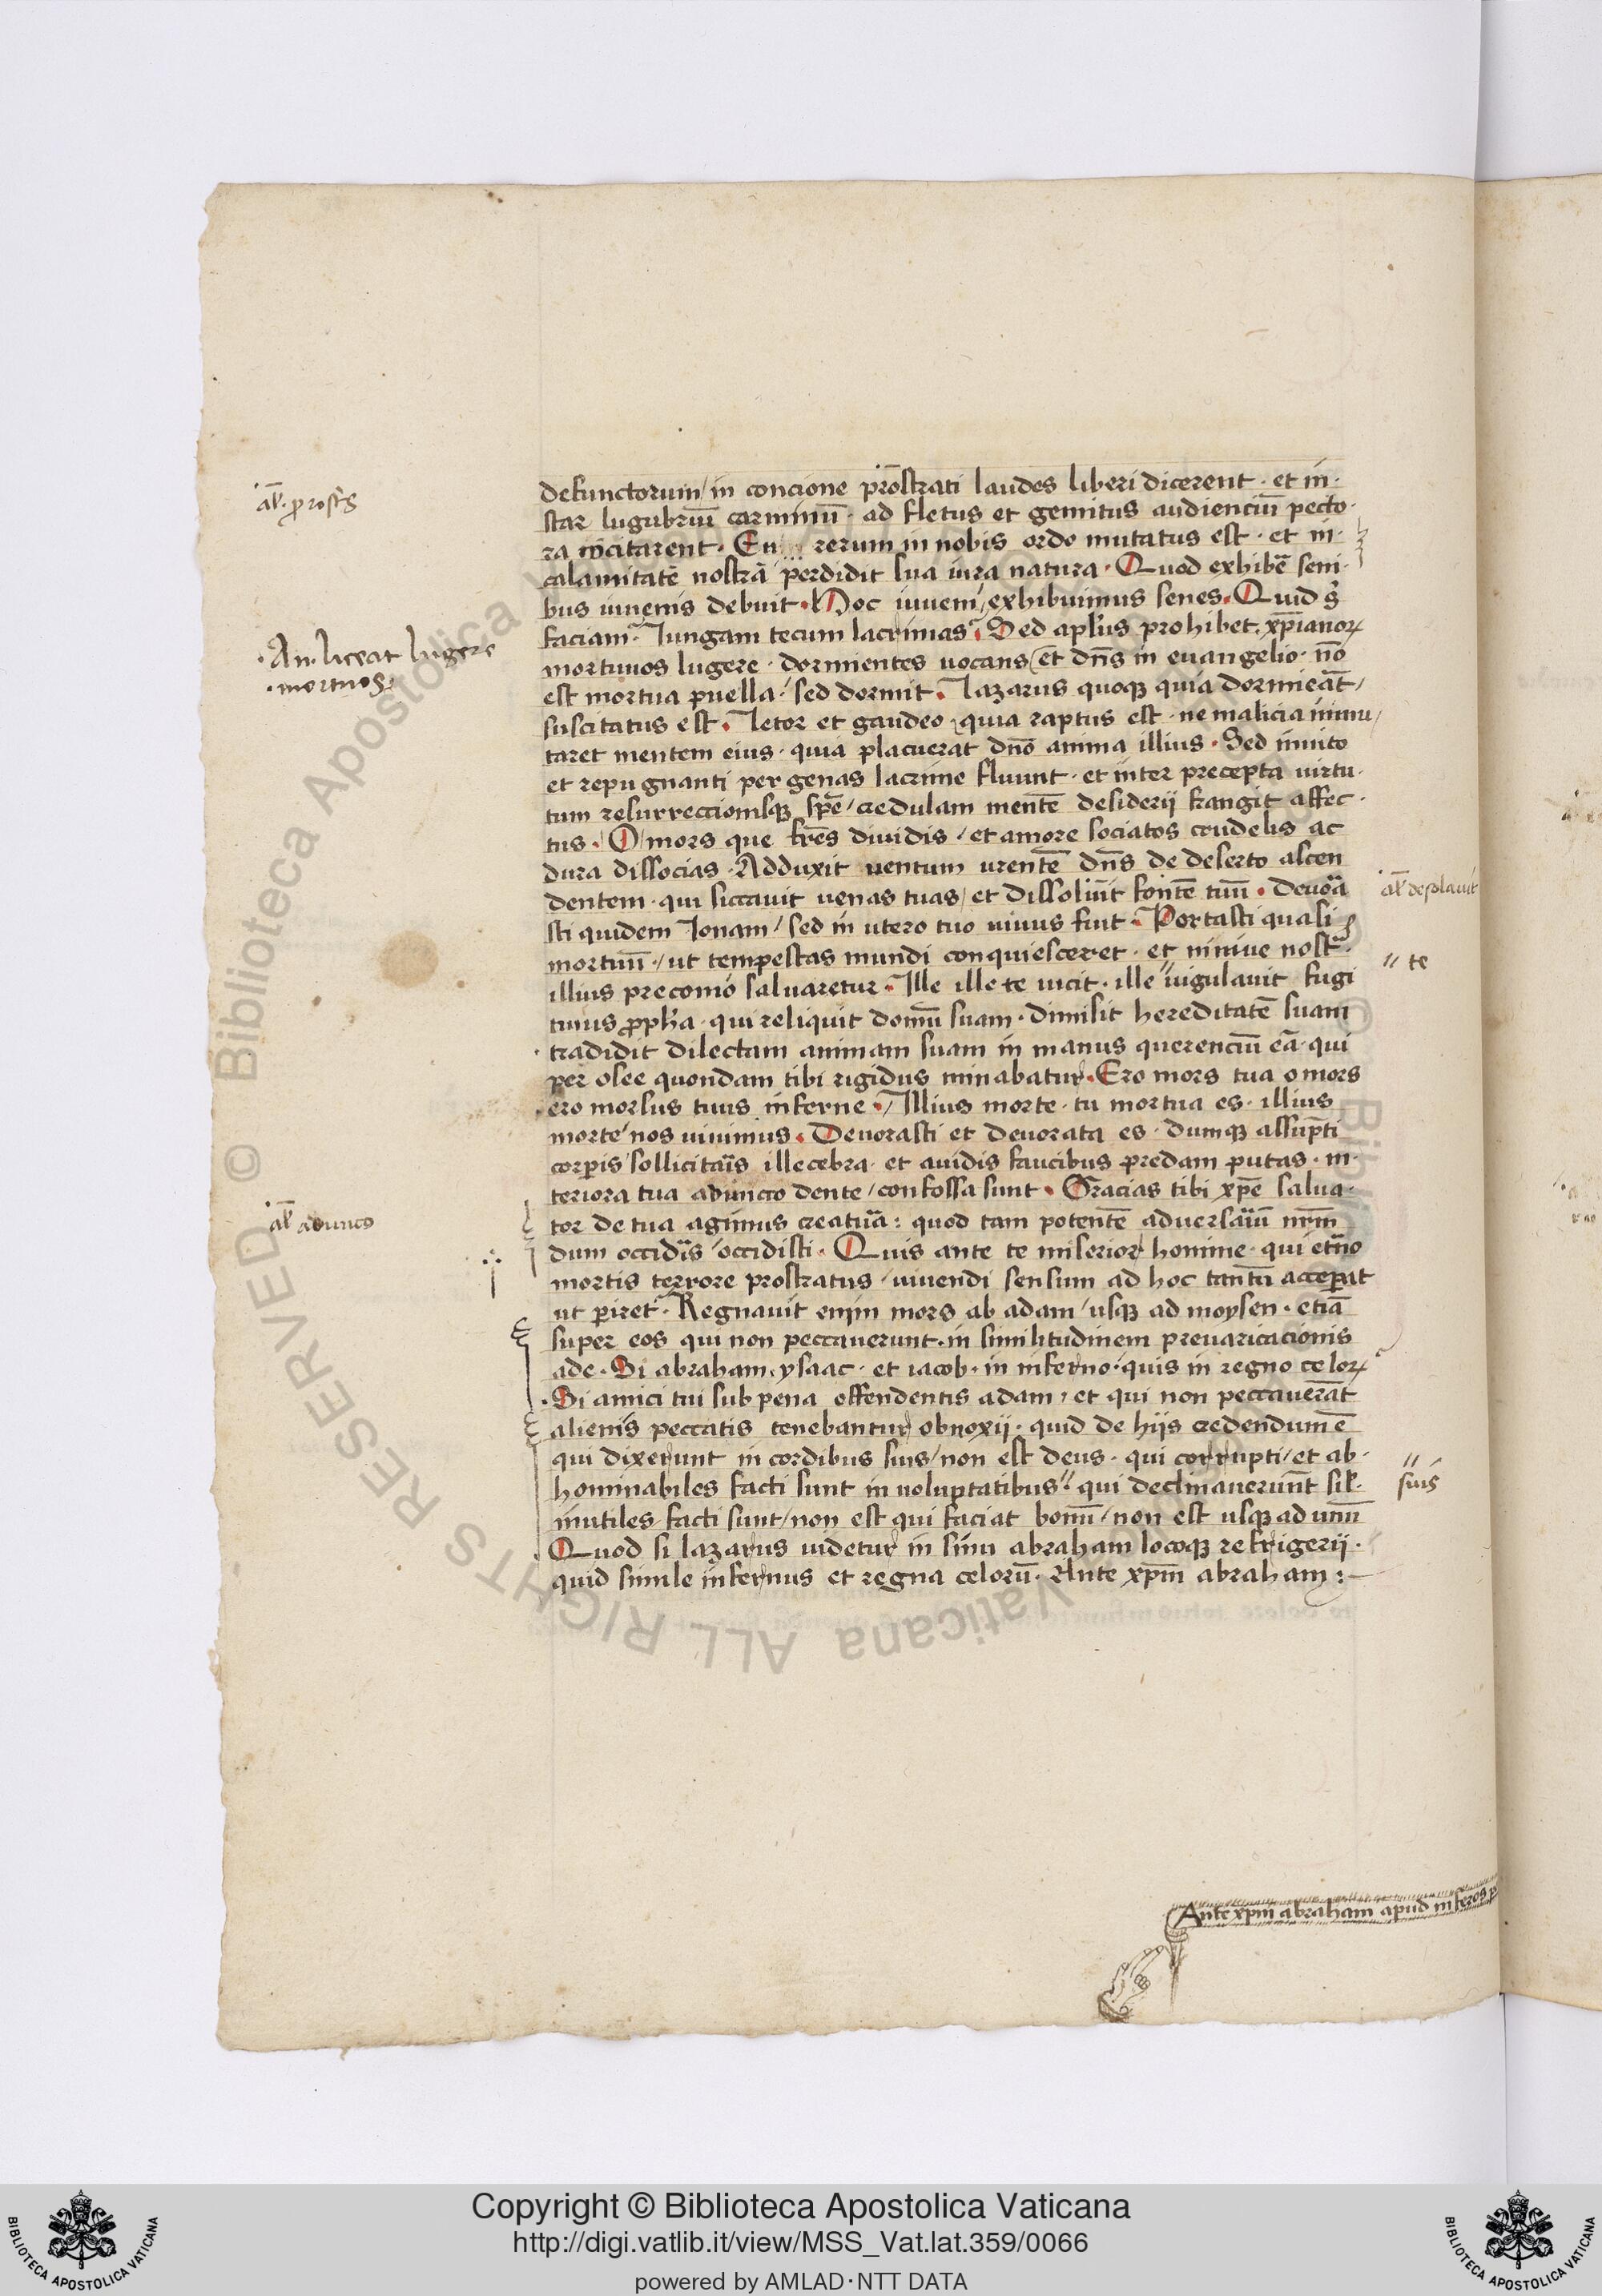 defunctorum/ in concione pro̅strati laudes liberi dicerent · et in·
star lugubriu̅ carminu̅ · ad fletus et gemitus audienciu̅ pecto·
ra incitarent · En rerum in nobis ordo mutatus est · et in·
calamitate̅ nostra̅ / perdidit sua iura natura · Quod exhibe̅ seni·
bus iuuenis debuit · Hoc iuueni / exhibuimus senes · Quid g̊
faciam · Iungam tecum lacrimas · Sed apl̅us prohibet · xp̅ianoꝝ
mortuuos lugere · dormientes uocans / et dn̅s in euangelio · no̅
est mortua puella / sed dormit · Lazarus quoqꝫ quia dormiea̅t /
suscitatus est · Letor et gaudeo · quia raptus est · ne malicia inmu/
taret mentem eius · quia placuerat dn̅o anima illius · Sed inuito
et repugnanti per genas lacrime fluunt · et inter precepta uirtu·
tum resurreccionisqꝫ spe̅ / credulam mente̅ desiderij frangit affec·
tus · O mors que fr̅es diuidis / et amore sociatos crudelis ac
dura dissocias · Adduxit uentum urente̅ dn̅s de deserto ascen
dentem · qui siccauit uenas tuas / et dissoluit fonte̅ tuu̅ · deuora
sti quidem Ionam / sed in utero tuo uiuus fuit · Portasti quasi
mortuu̅ · / ut tempestas mundi conquiesceret · et niniue nostra·
illius preconio saluaretur · Ille ille te uicit · ille " iugulauit fugi
tiuus ꝓph̅a · qui reliquit domu̅ suam · dimisit hereditate̅ suam
tradidit dilectam animam suam in manus querenciu̅ ea̅ · qui
per osee quondam tibi rigidus minabatur · Ero mors tua o mors
ero morsus tuus inferne · / Illius morte · tu mortua es · illius
morte / nos uiuimus · Deuorasti et deuorata es · dumqꝫ assu̅pti
corꝑis / sollicitaris illecebra · et auidis faucibus predam putas · in·
teriora tua aduncto dente / confossa sunt · Gracias tibi xp̅e salua·
tor de tua agimus creatura : quod tam potente̅ aduersariu̅ nr̅m
dum occidis / occidisti · Quis ante te miserior homine · qui et̅no
mortis terrore prostratus / uiuendi sensum ad hoc tantu̅ acceꝑat
ut ꝑiret · Regnauit enim mors ab adam / usqꝫ ad moysen · etia̅
super eos qui non peccauerunt · in similitudinem preuaricacionis
ade · Si abraham · ysaac · et iacob · in inferno · quis in regno celoꝝ
· Si amici tui sub pena offendentis adam / et qui non peccauera̅t
alienis peccatis tenebantur obnoxij · quid de hijs credendum e̅
qui dixerunt in cordibus suis / non est deus · qui corrupti / et ab·
hominabiles facti sunt in uoluptatibus " · qui declinauerunt sil̅·
inutiles facti sunt / non est qui faciat bonu̅ / non est usqꝫ ad unu̅
Quod si lazarus uidetur in sinu abraham locoqꝫ refrigerij ·
quid simile infernus et regna celoru̅ · Ante xp̅m abraham :
al̅ · prostris
· An · liceat lugere
· mortuos ·
al̅ adunco
al̅ desolauit
" te
"
suis
Ante xp̅m abraham apud inferos p
© Biblioteca Apostolica Vaticana ALL RIGHTS RESERVED
Copyright © Biblioteca Apostolica Vaticana
http://digi.vatlib.it/view/MSS_Vat.lat.359/0066
powered by AMLAD·NTT DATA
BIBLIOTECA APOSTOLICA VATICANA
BIBLIOTECA APOSTOLICA VATICANA